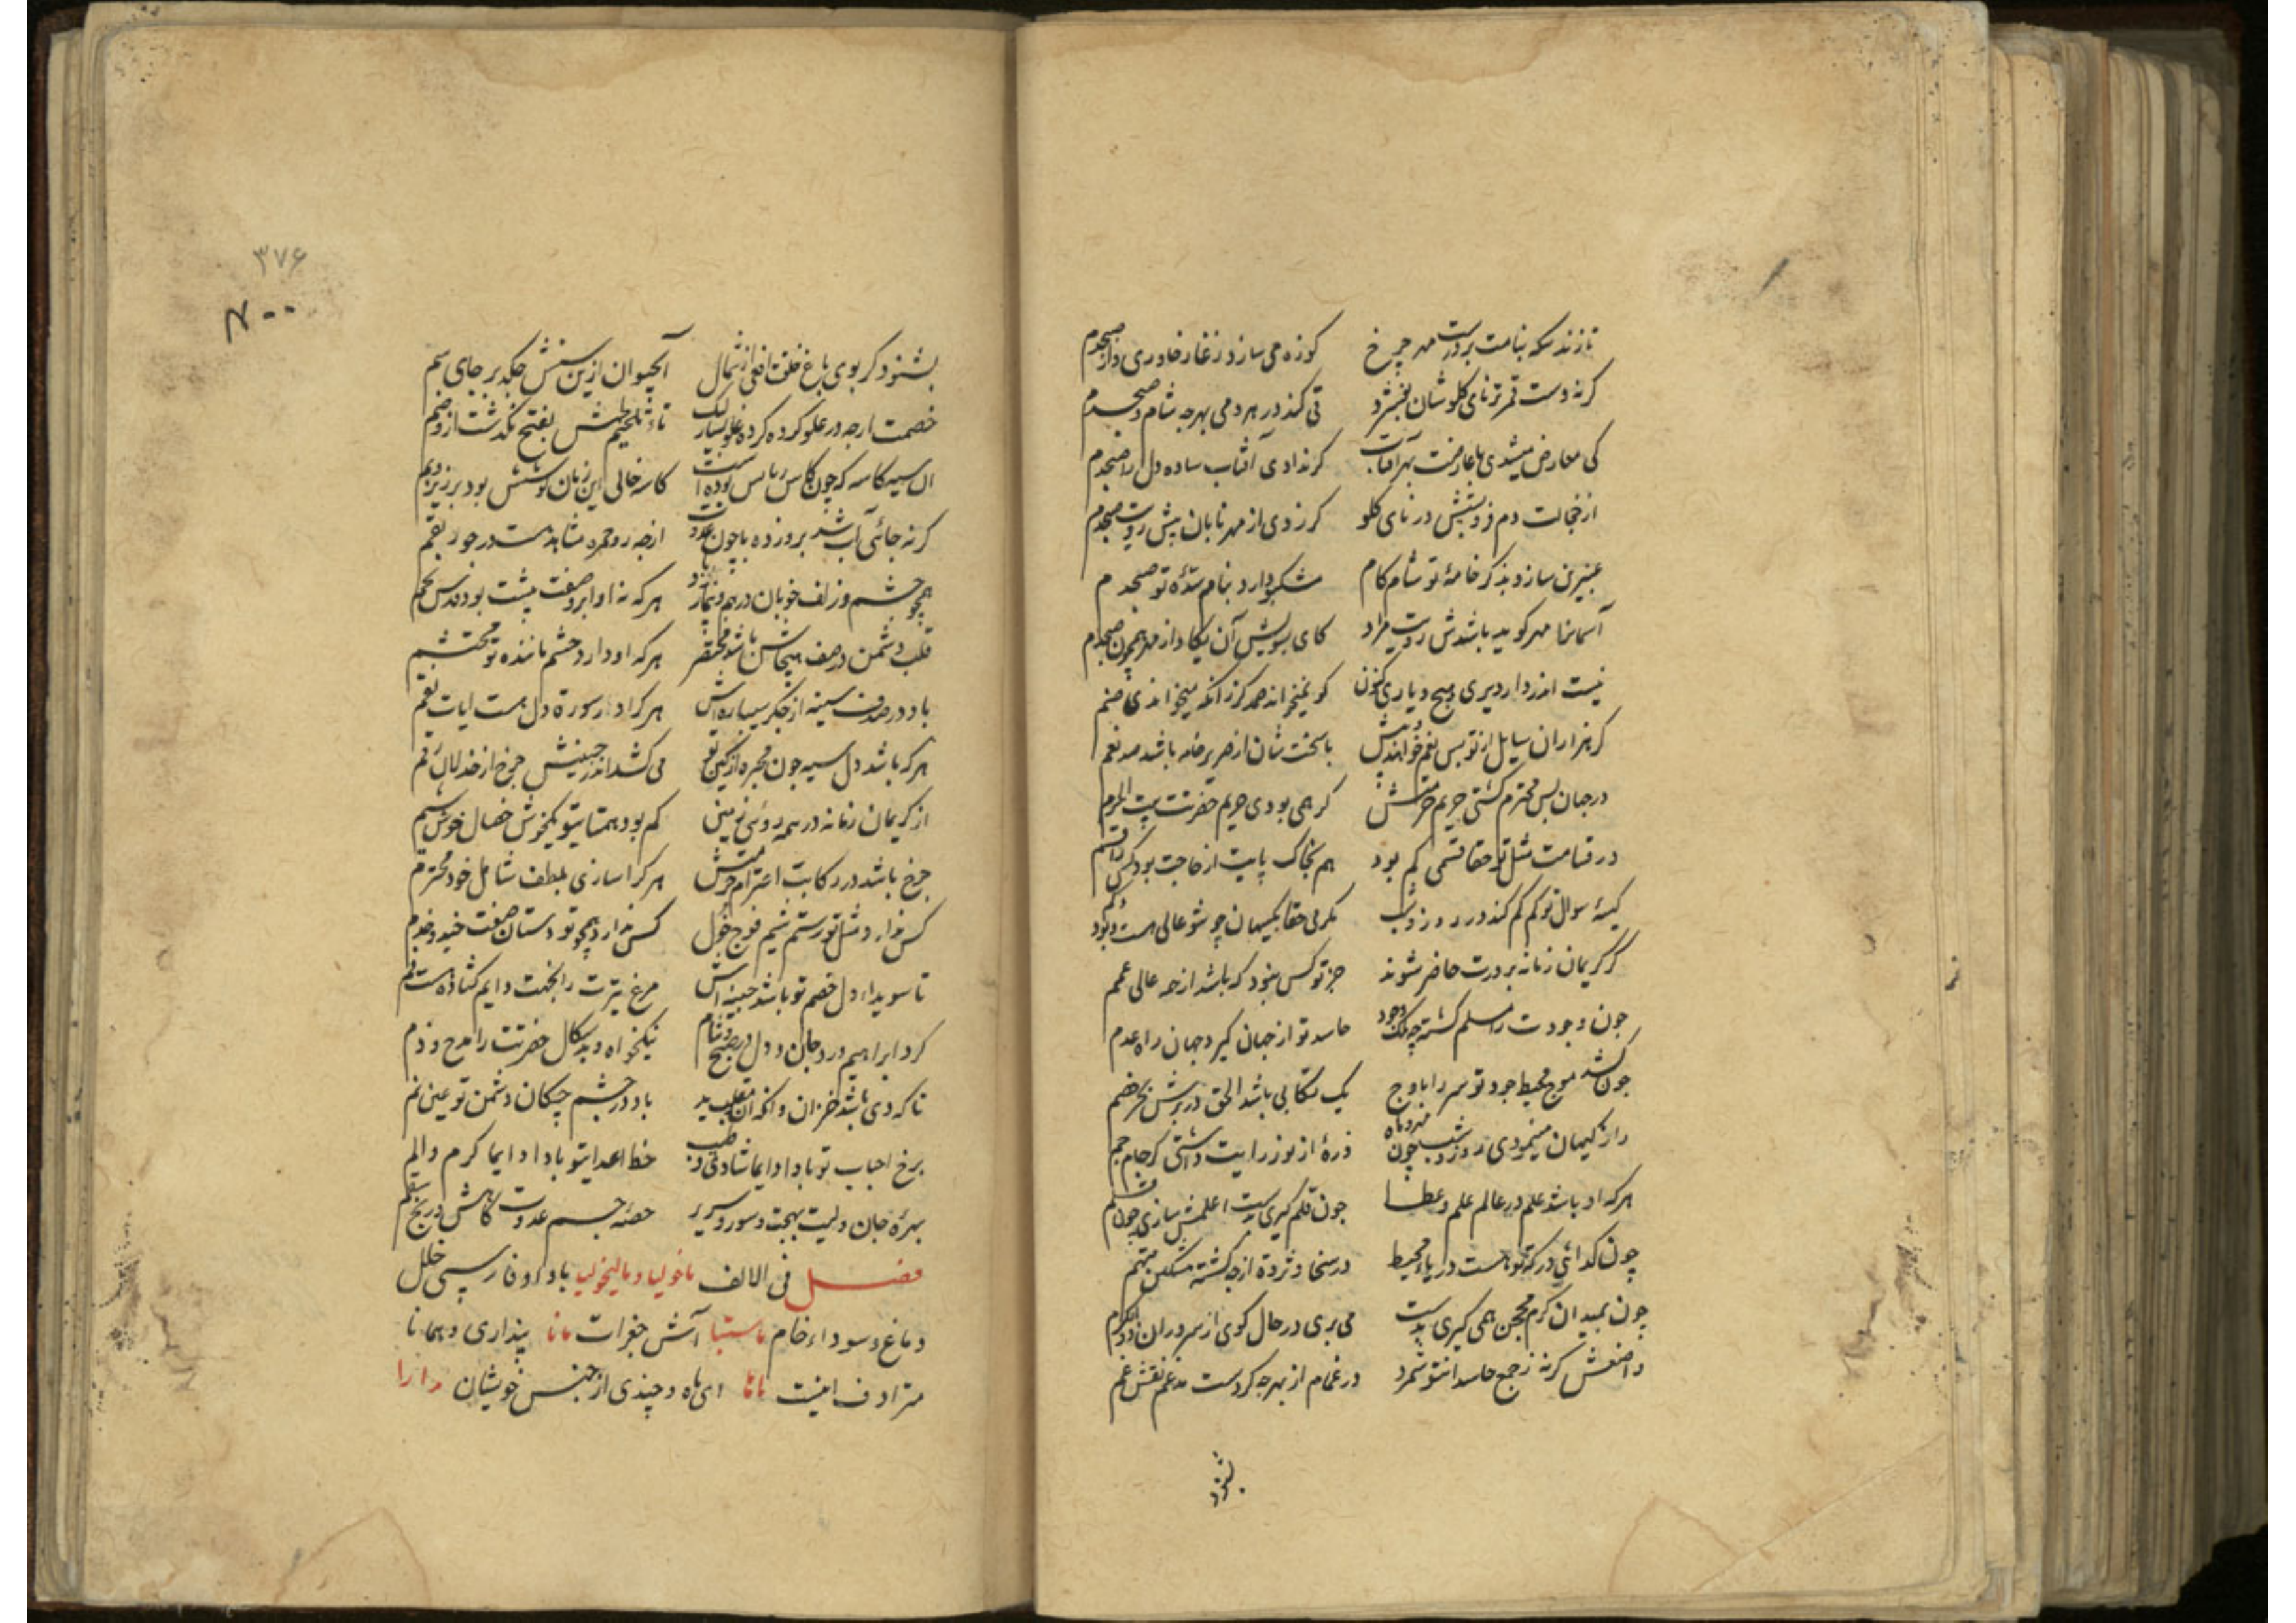 تا زند سکه بنامت بر درست مهر چرخ کوزه می سازد ز غار خاوری دار صبحدم
کرنه دست قمر تو نای کلوشان بفشرد قی کند در هر دمی بهر چه شام و صبحدم
کی معارض میشدی با عارضت بهر آفتاب کر ندادی آفتاب ساده دل را صبحدم
از خجالت دم فرو بستیش در نای کلو کر زدی از مهر تابان پیش رویت صبحدم
عنبرین سازد بذکر خامهٔ تو شام کام مشکبو دارد بنام سدهٔ تو صبحدم
آسمانرا مهر کوید باشدش رویت مراد کای بسویش آن یکاد از مهر همچون صبحدم
نیست اندر دار دیری هیچ دیاری کنون کو نمیخواند صمد کر زانکه میخواندی صنم
کر هزاران سایل از تو بس نعم خواهند باسخت شان از صریر خامه باشد صد نعم
در جهان بس محترم کشتی حریم حرمتش کر همی بودی حریم حضرتت بیت الحرم
در قسامت مثل تو حقا قسمی کم بود هم بخاک پایت از حاجت بود کس را قسم
کیسهٔ سوال تو کم کم کند در روز و شب مکرمی حقا بکیهان چو تو عالی هست و بود و کم
کر کریمان زمانه بر درت حاضر شوند جز تو کس نبود که باشد از همه عالی همم
چون وجودت را مسلم کشته چه ملک وجود حاسد تو از جهان کیرد جهان راه عدم
چون کشد موج محیط جود تو سر را باوج یک تکابی باشد الحق در برش بحر خضم
راز کیهان مینمودی روز و شب چون مهر و ماه ذرهٔ از نور رایت داشتی کر جام جم
هر که او باشد علم در عالم علم و عطا چون قلم کیری بدست اعلمش سازی چون قلم
چون کدائی درکه تو هست دریاء محیط در سخا و ثروة از چه کشته مشکین متهم
چون بمیدان کرم محجن همی کیری بدست می بری در حال کوی از سروران ذو الکرم
واضعش کرنه ز جمع حاسدانتو شمرد در غمام از بهر چه کردست مدغم نقش غم
بشنود
۳۷۶
بشنود کر بوی باغ خلقت افعی از شمال آب حیوان از بن سنش چکد بر جای سم
خصمت ارچه در علو کرده کرده غلو بسیار لیک تا تلخیم بطش بفتح نکدشت از و ضم
آن سیه کاسه که چون کاس رباب بوده است کاسه خالی این زمان کوشش بود بر زیر و بم
کرنه جائی آب شد بر وزده با چون عدوت از چه رو حمره مشابه هست در خور بقم
همچو چشم و زلف خوبان درهم و بیمار باد هر که نه او ابرو صفت پیشت بود قدس بخم
قلب دشمن در صف هیجاش باشد مختصر هر که او دارد حشم مانندهٔ تو محتشم
باد در صدف سینه از جکر سیپاره اش هر کرا در سورهٔ دل هست ایات نقم
هر که باشد دل سیه چون محبره از کین تو می کشد اندر جبینش چرخ از خذلان رقم
از کریمان زمانه در همه روی زمین کم بود همتایتو نیکخوش خصال خوش شیم
چرخ باشد در رکابت احترام حرمتش هر کرا سازی بلطف شامل خود محترم
کس ندارد مثل تو رستم شیم فوج خول کس ندارد همچو تو دستان صفت خیل و خدم
تا سویداء دل خصم تو باشد حبینه اش مرغ تیرت را بجهت دایم کشاده هست فم
کرد ابراهیم ورد جان و دل در صبح و شام نیکخواه و بدسکال حضرتت را مدح و ذم
تا که دی باشد خزان و انکه آن مقلوب ید باد در چشم چکان دشمن تو عین نم
برخ احباب تو بادا دایما شادی و طیب خط اعدایتو بادا دایما کرم و الم
بهرهٔ جان ولیت بهجت و سور و سریر حصهٔ جسم عدوت کاهش و رنج سقم
فصل فی الالف ماخولیا و مالیخولیا با واو و فارسی خلل
دماغ و سوداء خام ماستبا آش جغرات مانا پنداری و همانا
مترادف اینست مانا ای ماه و چندی از جنس خویشان مارا